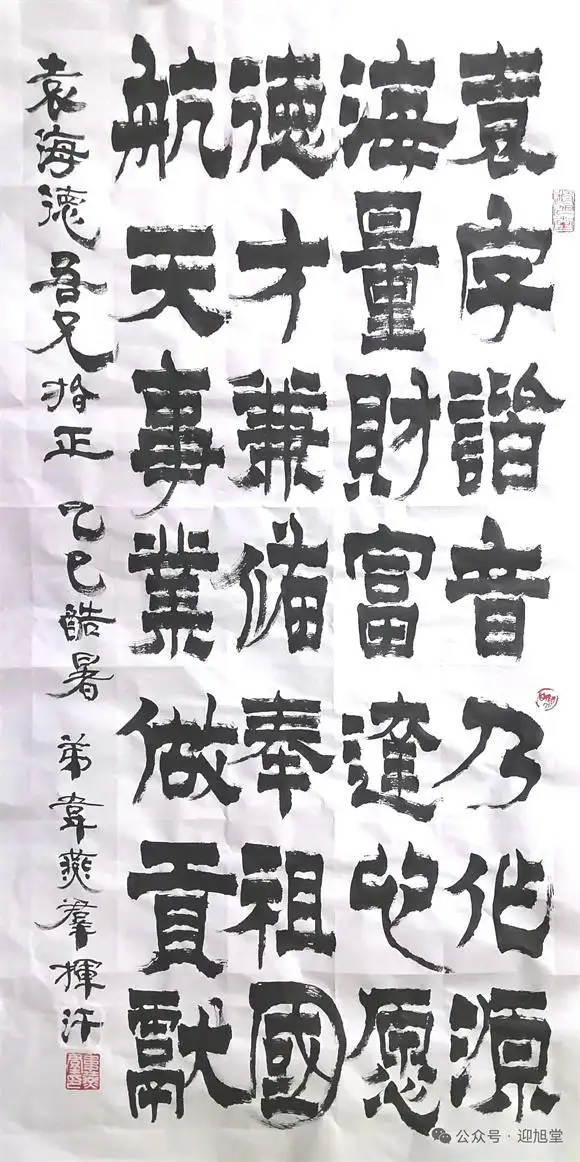 袁字諧音乃作源
海量財富達心愿
德才兼備奉祖國
航天事業做貢獻
袁海德吾兄指正 乙巳酷暑 弟韋燕羣揮汗
公众号·迎旭堂